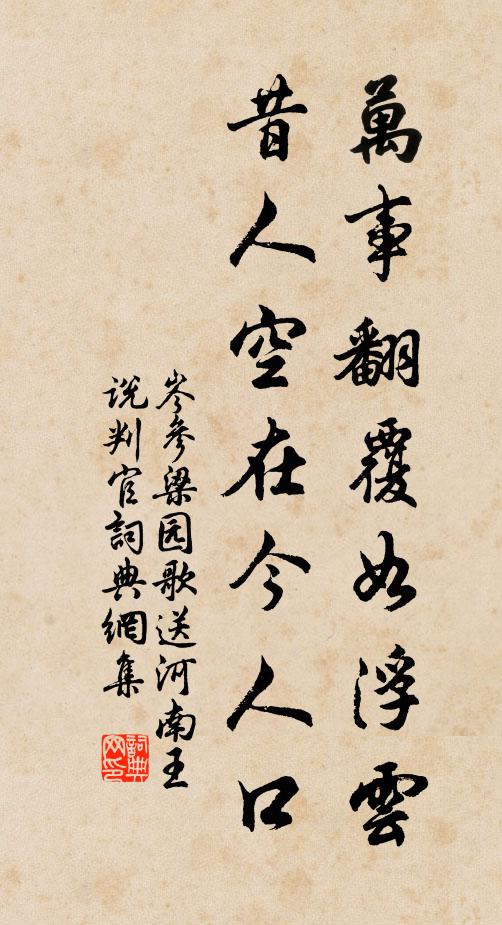 萬事翻覆如浮雲
昔人空在今人口
岑參梁园歌送河南王
说判官詞典網集
詞典网印